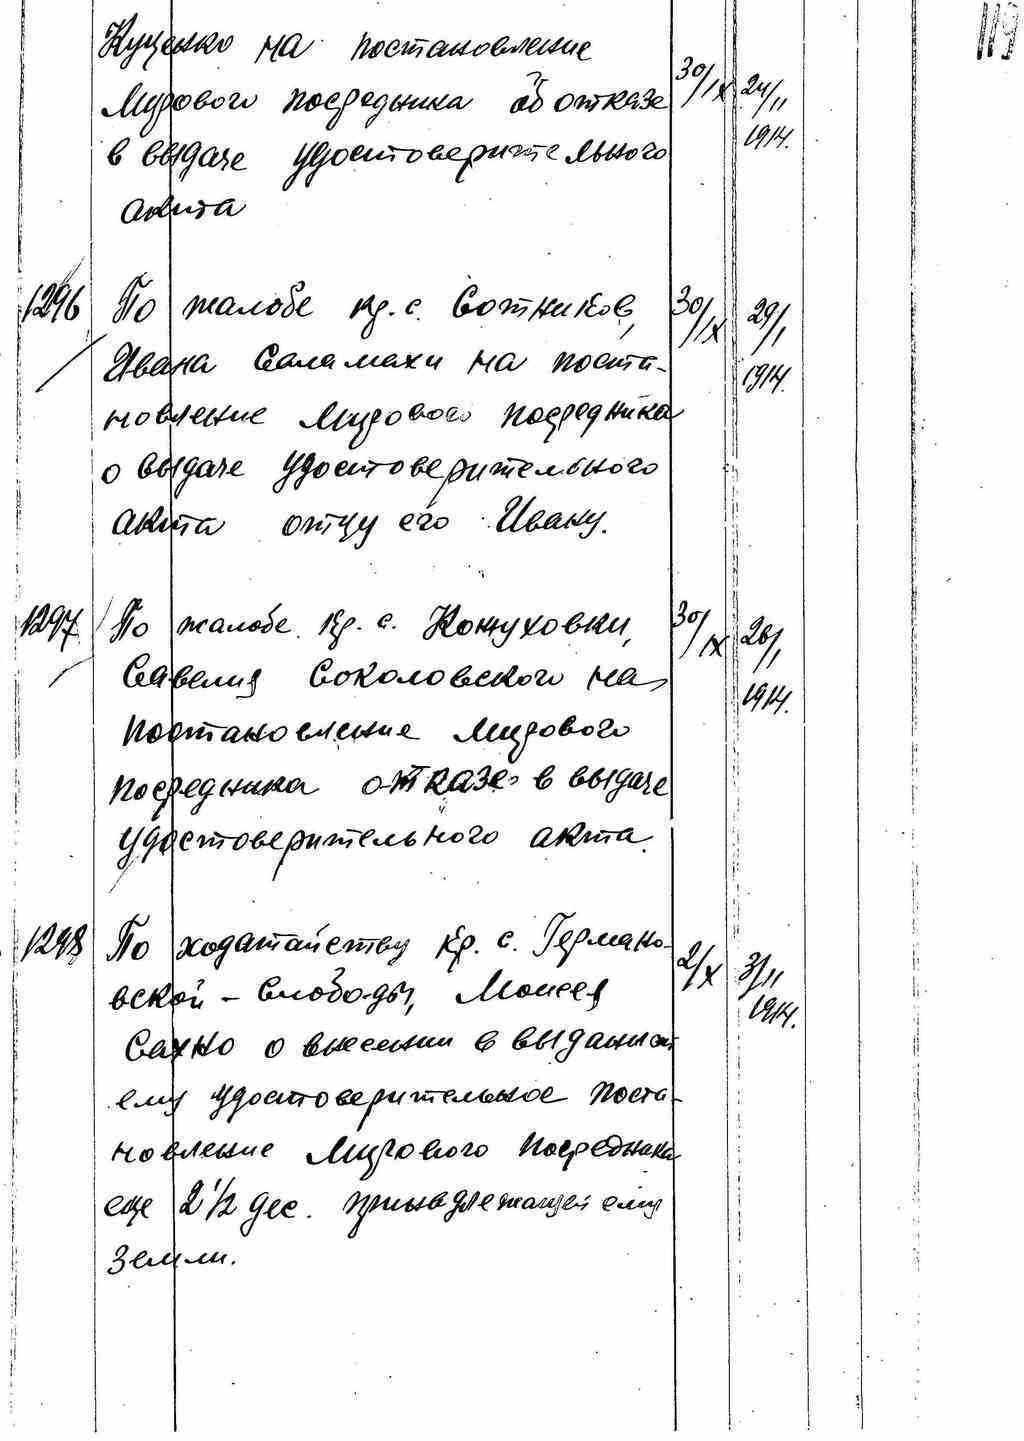 119
Куценко на постановление
Мирового посредника об отказе 30/IX 24/II
в выдаче удостоверительного 1914.
акта
1296 По жалобе кр. с. Сотников, 30/IX 29/I
Ивана Саламахи на поста- 1914.
новление Мирового посредника
о выдаче удостоверительного
акта отцу его Ивану.
1297 По жалобе кр. с. Кожуховки, 30/IX 28/I
Савелия Соколовского на 1914.
постановление Мирового
посредника отказе в выдаче
удостоверительного акта.
1298 По ходатайству кр. с. Германо- 2/X 3/II
вской - Слободы, Моисея 1914.
Сахно о внесении в выданное
ему удостоверительное поста-
новление Мирового посредника
еще 2 1/2 дес. принадлежащей ему
земли.